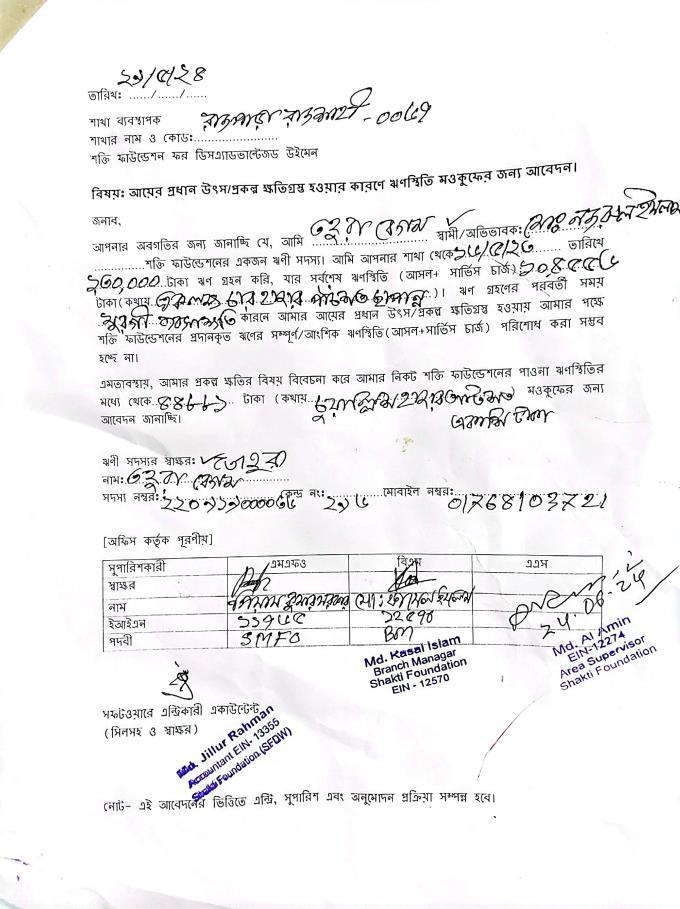 ২৯/৫/২৪
তারিখ: ....../....../......
শাখা ব্যবস্থাপক
শাখার নাম ও কোড:........................ রাজপাড়া রাজশাহী-০০৫৭
শক্তি ফাউন্ডেশন ফর ডিসএ্যাডভান্টেজড উইমেন
বিষয়: আয়ের প্রধান উৎস/প্রকল্প ক্ষতিগ্রস্ত হওয়ার কারণে ঋণস্থিতি মওকুফের জন্য আবেদন।
জনাব,
আপনার অবগতির জন্য জানাচ্ছি যে, আমি তহুরা বেগম স্বামী/অভিভাবক: মোঃ নজরুল ইসলাম
শক্তি ফাউন্ডেশনের একজন ঋণী সদস্য। আমি আপনার শাখা থেকে ১৫/৫/২৩ তারিখে
২৩০,০০০ টাকা ঋণ গ্রহন করি, যার সর্বশেষ ঋণস্থিতি (আসল+ সার্ভিস চার্জ) ১০৪৫৫৬
টাকা (কথায় একলক্ষ চার হাজার পাঁচশত ছাপ্পান্ন)। ঋণ গ্রহণের পরবর্তী সময়
মুরগী ব্যবসা ক্ষতি কারনে আমার আয়ের প্রধান উৎস/প্রকল্প ক্ষতিগ্রস্ত হওয়ায় আমার পক্ষে
শক্তি ফাউন্ডেশনের প্রদানকৃত ঋণের সম্পূর্ণ/আংশিক ঋণস্থিতি (আসল+সার্ভিস চার্জ) পরিশোধ করা সম্ভব
হচ্ছে না।
এমতাবস্থায়, আমার প্রকল্প ক্ষতির বিষয় বিবেচনা করে আমার নিকট শক্তি ফাউন্ডেশনের পাওনা ঋণস্থিতির
মধ্যে থেকে টাকা (কথায় হাজার মওকুফের জন্য
আবেদন জানাচ্ছি। একাশি টাকা
ঋণী সদস্যের স্বাক্ষর:
নাম: তহুরা বেগম
সদস্য নম্বর: কেন্দ্র নং: ২৯৫ মোবাইল নম্বর: 01768103721
[অফিস কর্তৃক পূরণীয়]
সুপারিশকারী এমএফও বিএম এএস
স্বাক্ষর
নাম মো: ইসলাম
ইআইএন ১২৫৭০
পদবী SMFO BM
24.06.24
Md. Kasal Islam
Branch Managar
Shakti Foundation
EIN - 12570
Md. Al Amin
EIN-12274
Area Supervisor
Shakti Foundation
সফটওয়ারে এন্ট্রিকারী একাউন্টেন্ট
(সিলসহ ও স্বাক্ষর)
Md. Jillur Rahman
Accountant EIN- 13355
Shakti Foundation (SFDW)
নোট- এই আবেদনের ভিত্তিতে এন্ট্রি, সুপারিশ এবং অনুমোদন প্রক্রিয়া সম্পন্ন হবে।